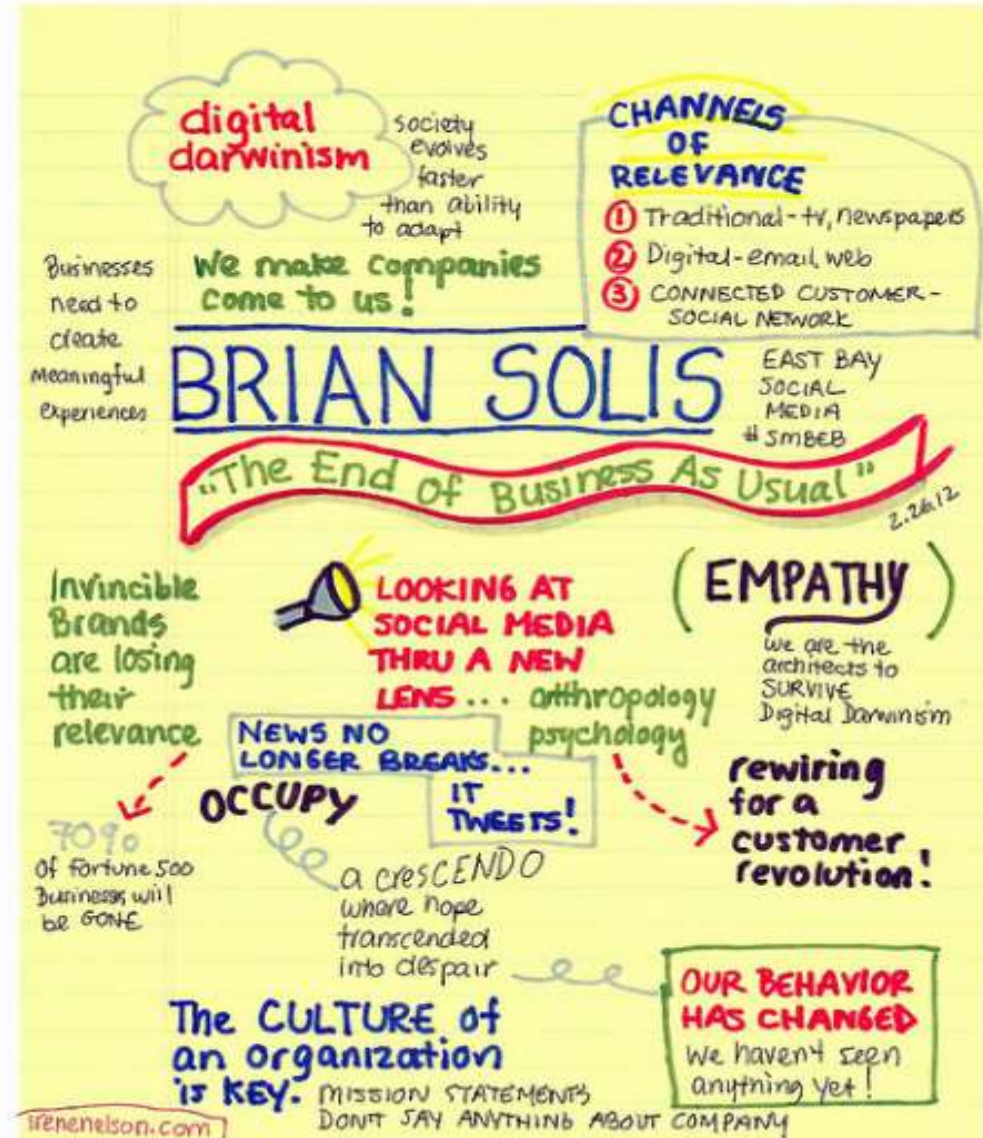 digital
darwinism
society
evolves
faster
than ability
to adapt
CHANNELS
OF
RELEVANCE
① Traditional - tv, newspapers
② Digital - email, web
③ CONNECTED CUSTOMER -
SOCIAL NETWORK
Businesses
need to
create
Meaningful
experiences
We make companies
come to us!
BRIAN SOLIS
EAST BAY
SOCIAL
MEDIA
# SMBEB
"The End of Business As Usual"
2.26.12
Invincible
Brands
are losing
their
relevance
LOOKING AT
SOCIAL MEDIA
THRU A NEW
LENS... anthropology
psychology
(EMPATHY)
we are the
architects to
SURVIVE
Digital Darwinism
NEWS NO
LONGER BREAKS...
IT
TWEETS!
rewiring
for a
customer
revolution!
70%
Of fortune 500
Businesses will
be GONE
OCCUPY
a cresCENDO
where hope
transcended
into despair
OUR BEHAVIOR
HAS CHANGED
We haven't seen
anything yet!
The CULTURE of
an organization
is KEY. MISSION STATEMENTS
DON'T SAY ANYTHING ABOUT COMPANY
irenenelson.com